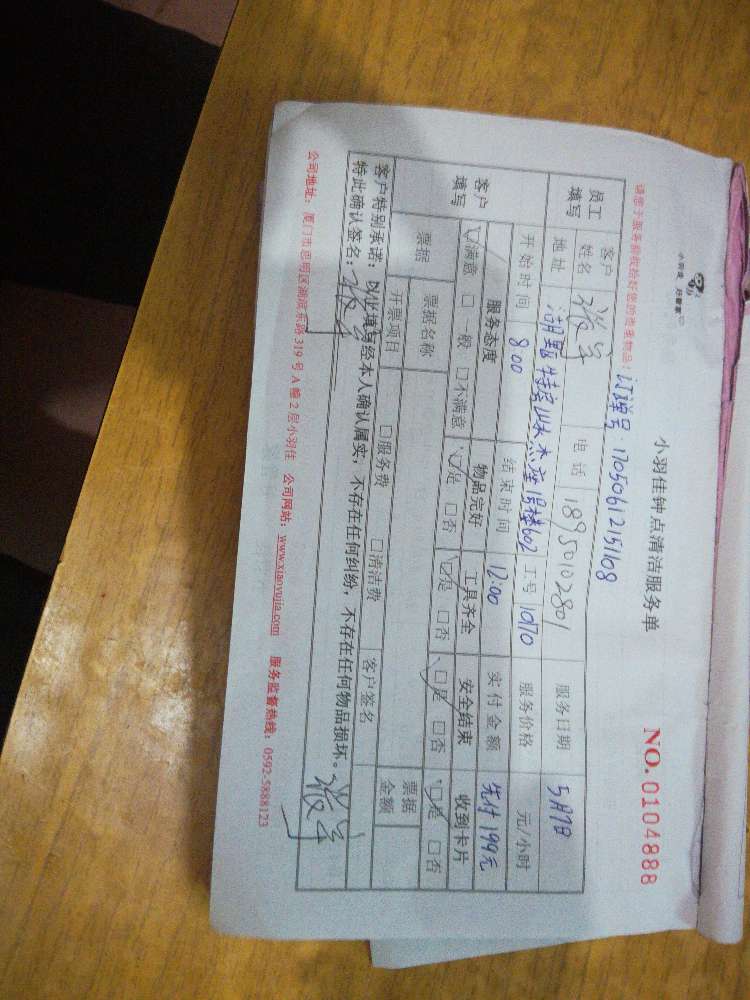 小羽佳 好管家
小羽佳钟点清洁服务单
NO. 0104888
请您于服务前收拾好您的贵重物品！
订单号：17050612151108
员工填写 客户姓名 张 电话 18950102801 服务日期 5月7日
地址 602 工号 1070 服务价格 元/小时
开始时间 8:00 结束时间 12:00 实付金额 先付199元
客户填写 服务态度 物品完好 工具齐全 安全结束 收到卡片
☑满意 □一般 □不满意 ☑是 □否 ☑是 □否 ☑是 □否 ☑是 □否
票据 票据名称 □服务费 □清洁费 票据金额
开票项目 客户签名
客户特别承诺：以上填写经本人确认属实，不存在任何纠纷，不存在任何物品损坏。
特此确认签名：张
公司地址：厦门市思明区湖滨东路319号A幢2层小羽佳 公司网站：www.xiaoyujia.com 服务监督热线：0592-5888123